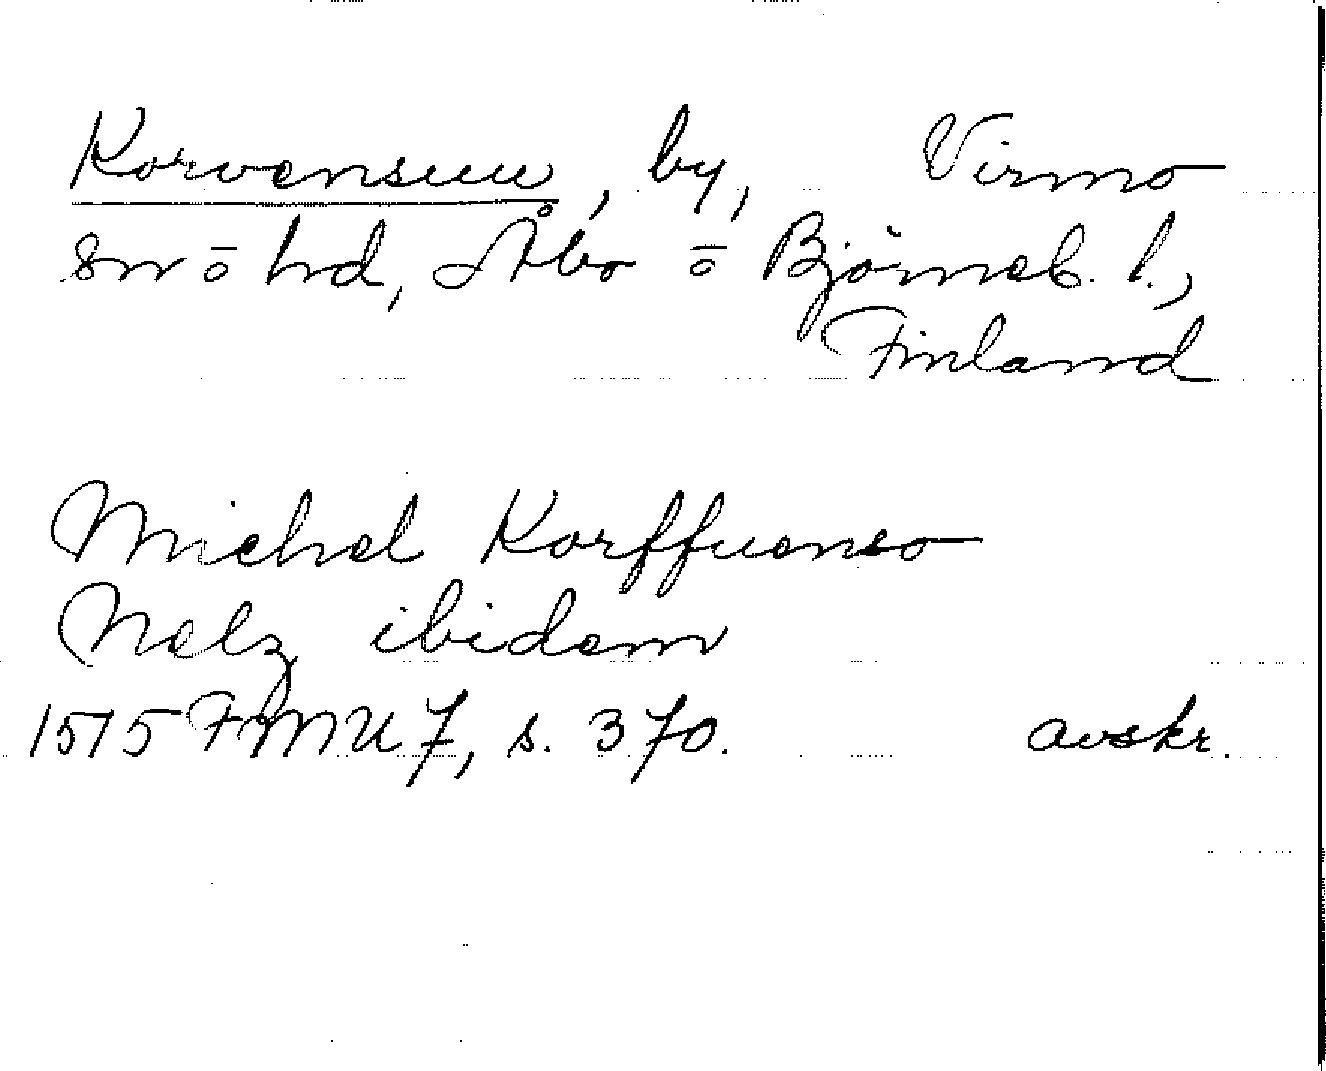 Korvensuu, by, Virmo
sn ō hd, Åbo ō Björneb. l.,
Finland
Michel Korffuenso
Nelz ibidem
1515 FMU 7, s. 370. avskr.